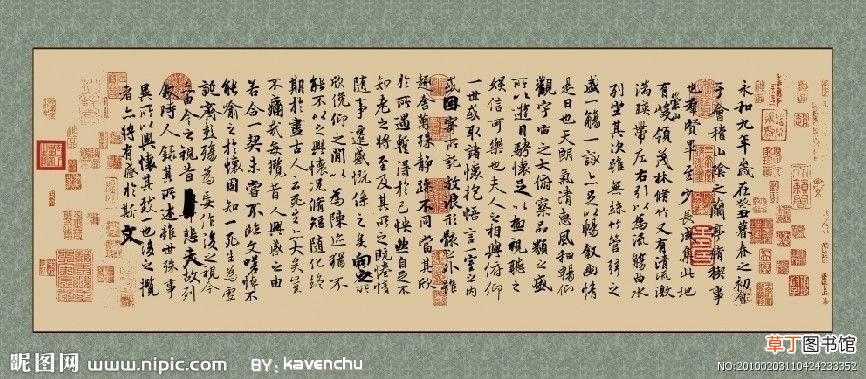 永和九年歲在癸丑暮春之初會
于會稽山陰之蘭亭脩稧事
也群賢畢至少長咸集此地
有崇山峻領茂林脩竹又有清流激
湍暎帶左右引以為流觴曲水
列坐其次雖無絲竹管弦之
盛一觴一詠亦足以暢敘幽情
是日也天朗氣清惠風和暢仰
觀宇宙之大俯察品類之盛
所以遊目騁懷足以極視聽之
娛信可樂也夫人之相與俯仰
一世或取諸懷抱悟言一室之內
或因寄所託放浪形骸之外雖
趣舍萬殊靜躁不同當其欣
於所遇蹔得於己怏然自足不
知老之將至及其所之既惓情
隨事遷感慨係之矣向之所
欣俛仰之閒以為陳迹猶不
能不以之興懷況脩短隨化終
期於盡古人云死生亦大矣豈
不痛哉每攬昔人興感之由
若合一契未嘗不臨文嗟悼不
能喻之於懷固知一死生為虛
誕齊彭殤為妄作後之視今
亦由今之視昔悲夫故列
敘時人錄其所述雖世殊事
異所以興懷其致一也後之攬
者亦將有感於斯文
昵图网 www.nipic.com BY: kavenchu
草丁图书馆
NO:20100203110424233352